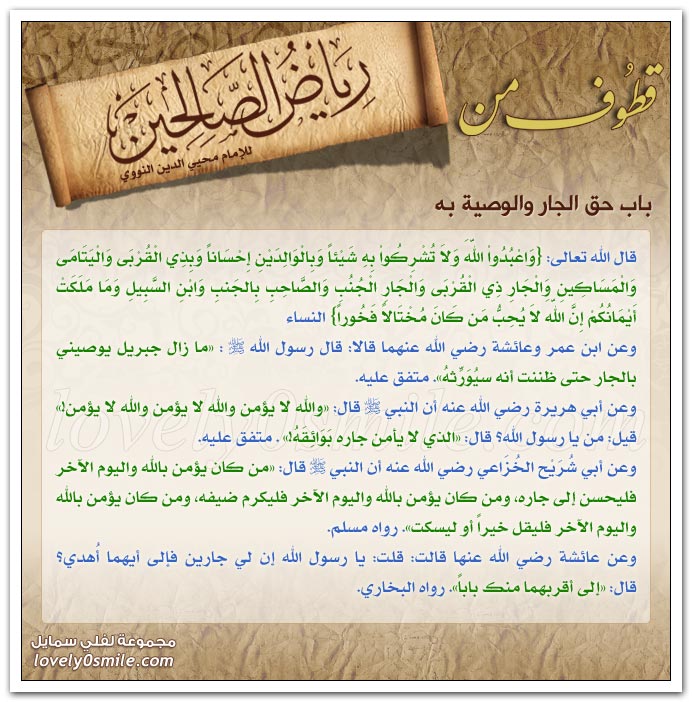 قطوف من
رياض الصالحين
للإمام محيي الدين النووي
باب حق الجار والوصية به
قال الله تعالى: {وَاعْبُدُواْ اللّهَ وَلاَ تُشْرِكُواْ بِهِ شَيْئاً وَبِالْوَالِدَيْنِ إِحْسَاناً وَبِذِي الْقُرْبَى وَالْيَتَامَى
وَالْمَسَاكِينِ وَالْجَارِ ذِي الْقُرْبَى وَالْجَارِ الْجُنُبِ وَالصَّاحِبِ بِالجَنبِ وَابْنِ السَّبِيلِ وَمَا مَلَكَتْ
أَيْمَانُكُمْ إِنَّ اللّهَ لاَ يُحِبُّ مَن كَانَ مُخْتَالاً فَخُوراً} النساء
وعن ابن عمر وعائشة رضي الله عنهما قالا: قال رسول الله ﷺ : «ما زال جبريل يوصيني
بالجار حتى ظننت أنه سيُوَرِّثهُ». متفق عليه.
وعن أبي هريرة رضي الله عنه أن النبي ﷺ قال: «والله لا يؤمن والله لا يؤمن والله لا يؤمن!»
قيل: من يا رسول الله؟ قال: «الذي لا يأمن جاره بَوَائِقَهُ!» . متفق عليه.
وعن أبي شُرَيْح الخُزَاعي رضي الله عنه أن النبي ﷺ قال: «من كان يؤمن بالله واليوم الآخر
فليحسن إلى جاره، ومن كان يؤمن بالله واليوم الآخر فليكرم ضيفه، ومن كان يؤمن بالله
واليوم الآخر فليقل خيراً أو ليسكت». رواه مسلم.
وعن عائشة رضي الله عنها قالت: قلت: يا رسول الله إن لي جارين فإلى أيهما أُهدي؟
قال: «إلى أقربهما منك باباً». رواه البخاري.
lovely0smile.com
مجموعة لفلي سمايل
lovely0smile.com